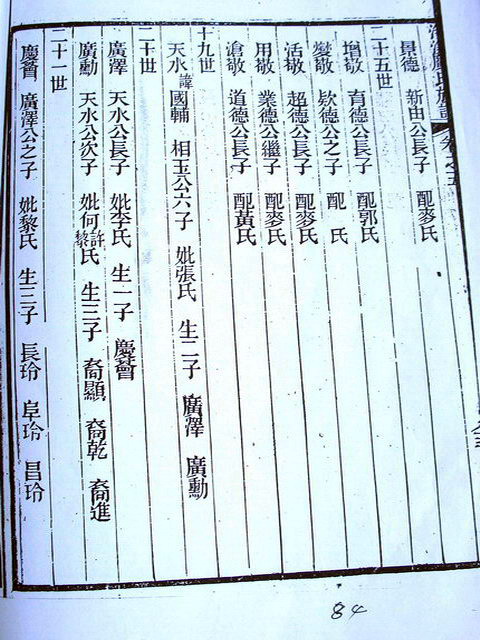 氏族譜 卷之五
景德 新由公長子 配麥氏
二十五世
增敬 育德公長子 配郭氏
變敬 欽德公之子 配 氏
活敬 超德公長子 配麥氏
用敬 業德公繼子 配麥氏
滄敬 道德公長子 配黃氏
十九世
天水 諱國輔 相玉公六子 妣張氏 生二子 廣澤 廣勳
二十世
廣澤 天水公長子 妣李氏 生一子 慶薈
廣勳 天水公次子 妣何許黎氏 生三子 裔顯 裔乾 裔進
二十一世
慶薈 廣澤公之子 妣黎氏 生三子 長玲 阜玲 昌玲
84